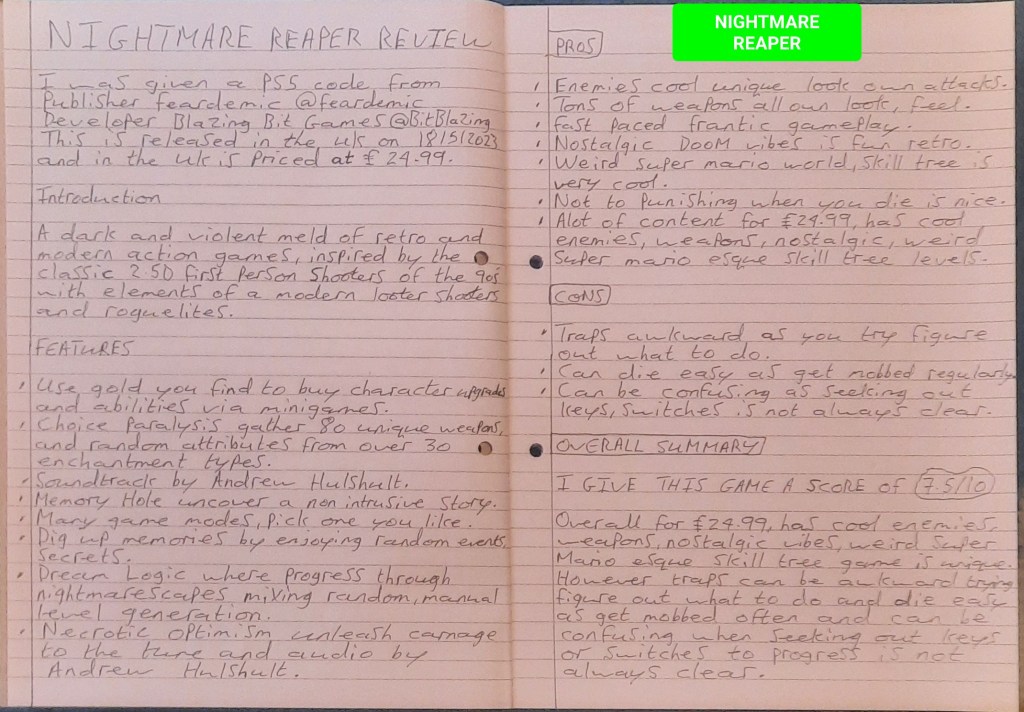 NIGHTMARE REAPER REVIEW
I was given a PS5 code from
Publisher feardemic @feardemic
Developer Blazing Bit Games @BitBlazing
This is released in the uk on 18/5/2023
and in the uk is priced at £24.99.
Introduction
A dark and violent meld of retro and
modern action games, inspired by the
classic 2.5D first person shooters of the 90s
with elements of a modern looter shooters
and roguelites.
FEATURES
• Use gold you find to buy character upgrades
and abilities via minigames.
• Choice Paralysis gather 80 unique weapons,
and random attributes from over 30
enchantment types.
• Soundtrack by Andrew Hulshult.
• Memory Hole uncover a non intrusive story.
• Many game modes, pick one you like.
• Dig up memories by enjoying random events,
secrets.
• Dream Logic where progress through
nightmarescapes mixing random, manual
level generation.
• Necrotic Optimism unleash carnage
to the tune and audio by
Andrew Hulshult.
NIGHTMARE
REAPER
PROS
• Enemies cool unique look own attacks.
• Tons of weapons all own look, feel.
• Fast paced frantic gameplay.
• Nostalgic DOOM vibes is fun retro.
• Weird super mario world, skill tree is
very cool.
• Not to punishing when you die is nice.
• Alot of content for £24.99, has cool
enemies, weapons, nostalgic, weird
Super mario esque skill tree levels.
CONS
• Traps awkward as you try figure
out what to do.
• Can die easy as get mobbed regularly.
• Can be confusing as seeking out
keys, switches is not always clear.
OVERALL SUMMARY
I GIVE THIS GAME A SCORE OF 7.5/10
Overall for £24.99, has cool enemies,
weapons, nostalgic vibes, weird super
Mario esque skill tree game is unique.
However traps can be awkward trying
figure out what to do and die easy
as get mobbed often and can be
confusing when seeking out keys
or switches to progress is not
always clear.